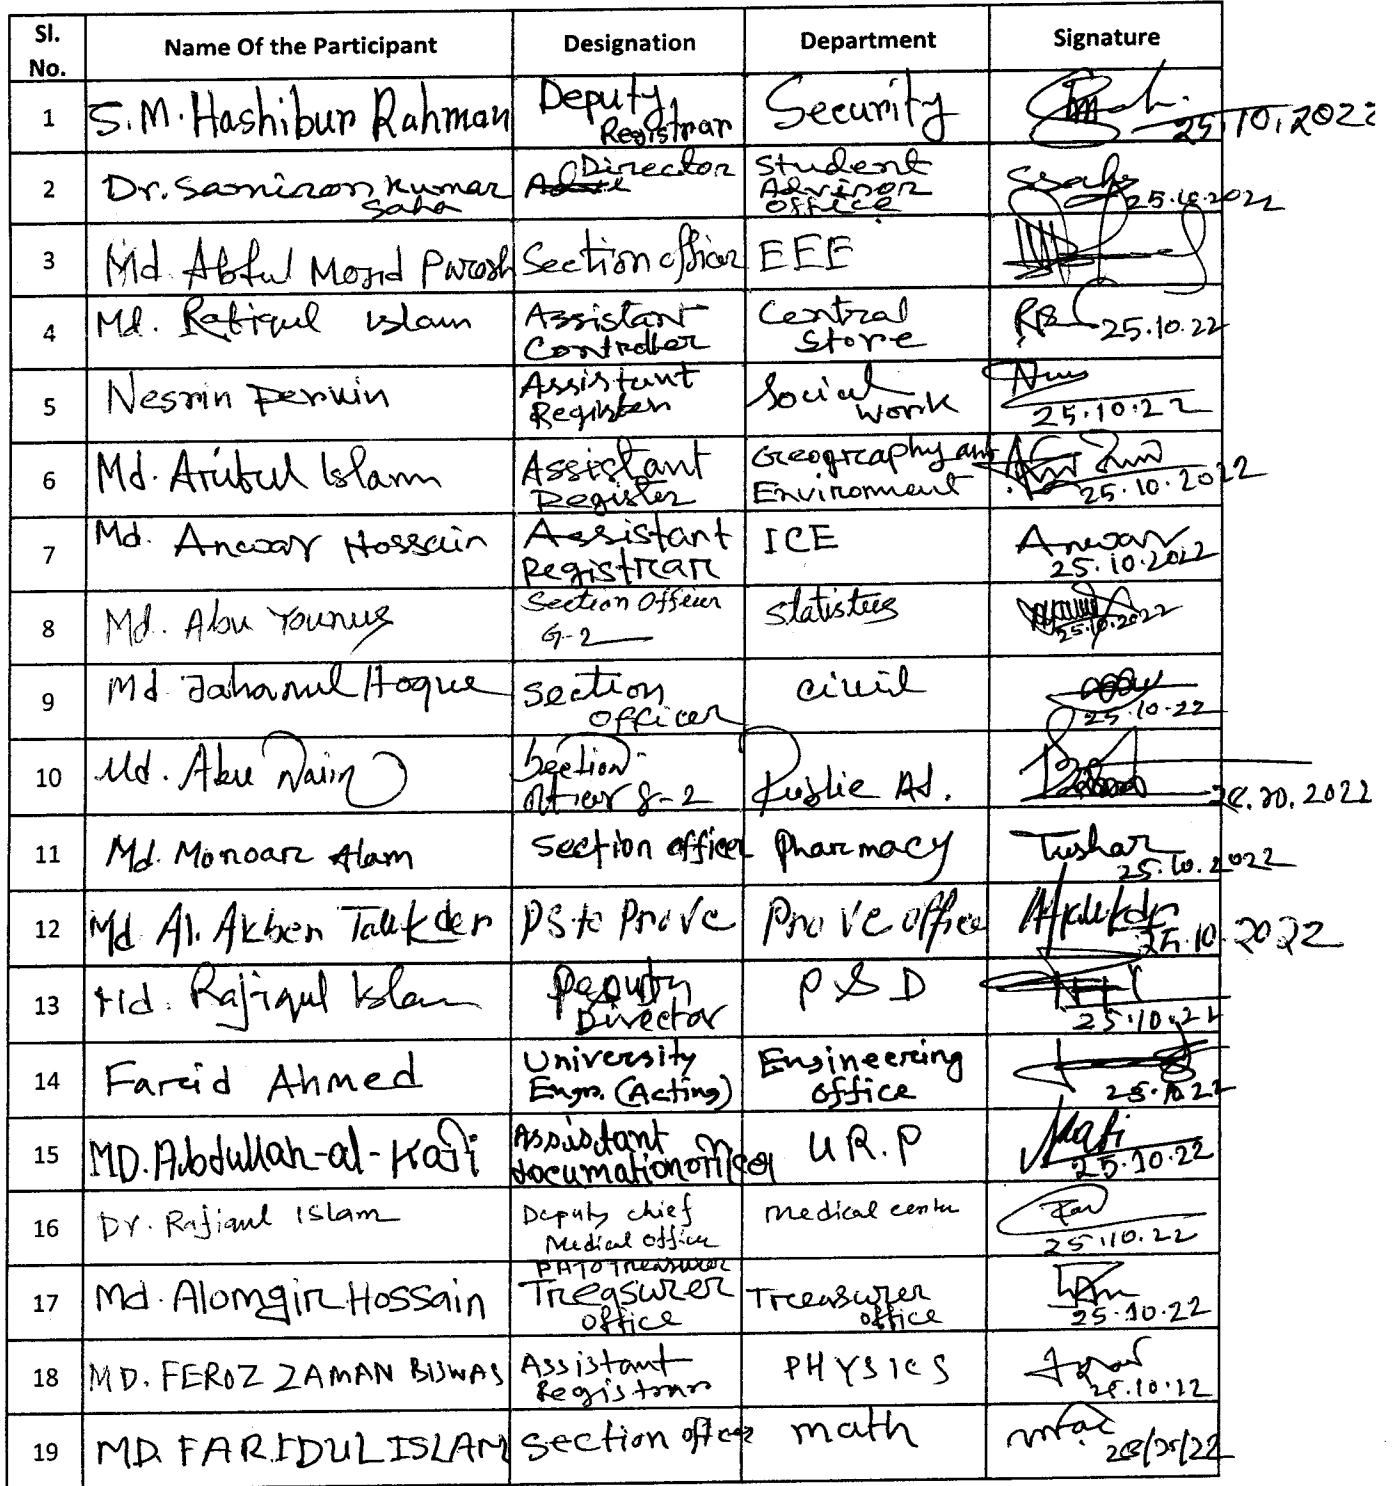 Sl. No. Name Of the Participant Designation Department Signature
1 S.M. Hashibur Rahman Deputy Registrar Security 25.10.2022
2 Dr. Samiron Kumar Saha Director Student Advisor Office 25.10.2022
3 Md. Abful Mojid Section officer EEE
4 Md. Rafiqul Islam Assistant Controller Central Store 25.10.22
5 Nesrin Pervin Assistant Register Social Work 25.10.22
6 Md. Islam Assistant Register Geography and Environment 25.10.2022
7 Md. Anwar Hossain Assistant Registrar ICE Anwar 25.10.2022
8 Md. Abu Younus Section Officer G-2 Statistics 25.10.2022
9 Md Jahanul Hoque Section Officer civil 25.10.22
10 Md. Abu Naim Section officer g-2 Public Ad. 2022
11 Md. Monoar Alam Section officer Pharmacy Tushar 25.10.2022
12 Md Al. Akber Talukder PS to Pro VC Pro VC office 25.10.2022
13 Md. Rafiqul Islam Deputy Director P & D 25.10.22
14 Farid Ahmed University Engr. (Acting) Engineering office 25.10.22
15 MD. Abdullah-al-Kafi Assistant documation officer U.R.P Kafi 25.10.22
16 Dr. Rafiqul Islam Deputy chief Medical officer Medical center 25.10.22
17 Md. Alomgir Hossain PA TO Treasurer Treasurer office Treasurer office 25.10.22
18 MD. FEROZ ZAMAN BISWAS Assistant Registrar PHYSICS 25.10.22
19 MD. FARIDUL ISLAM Section officer math